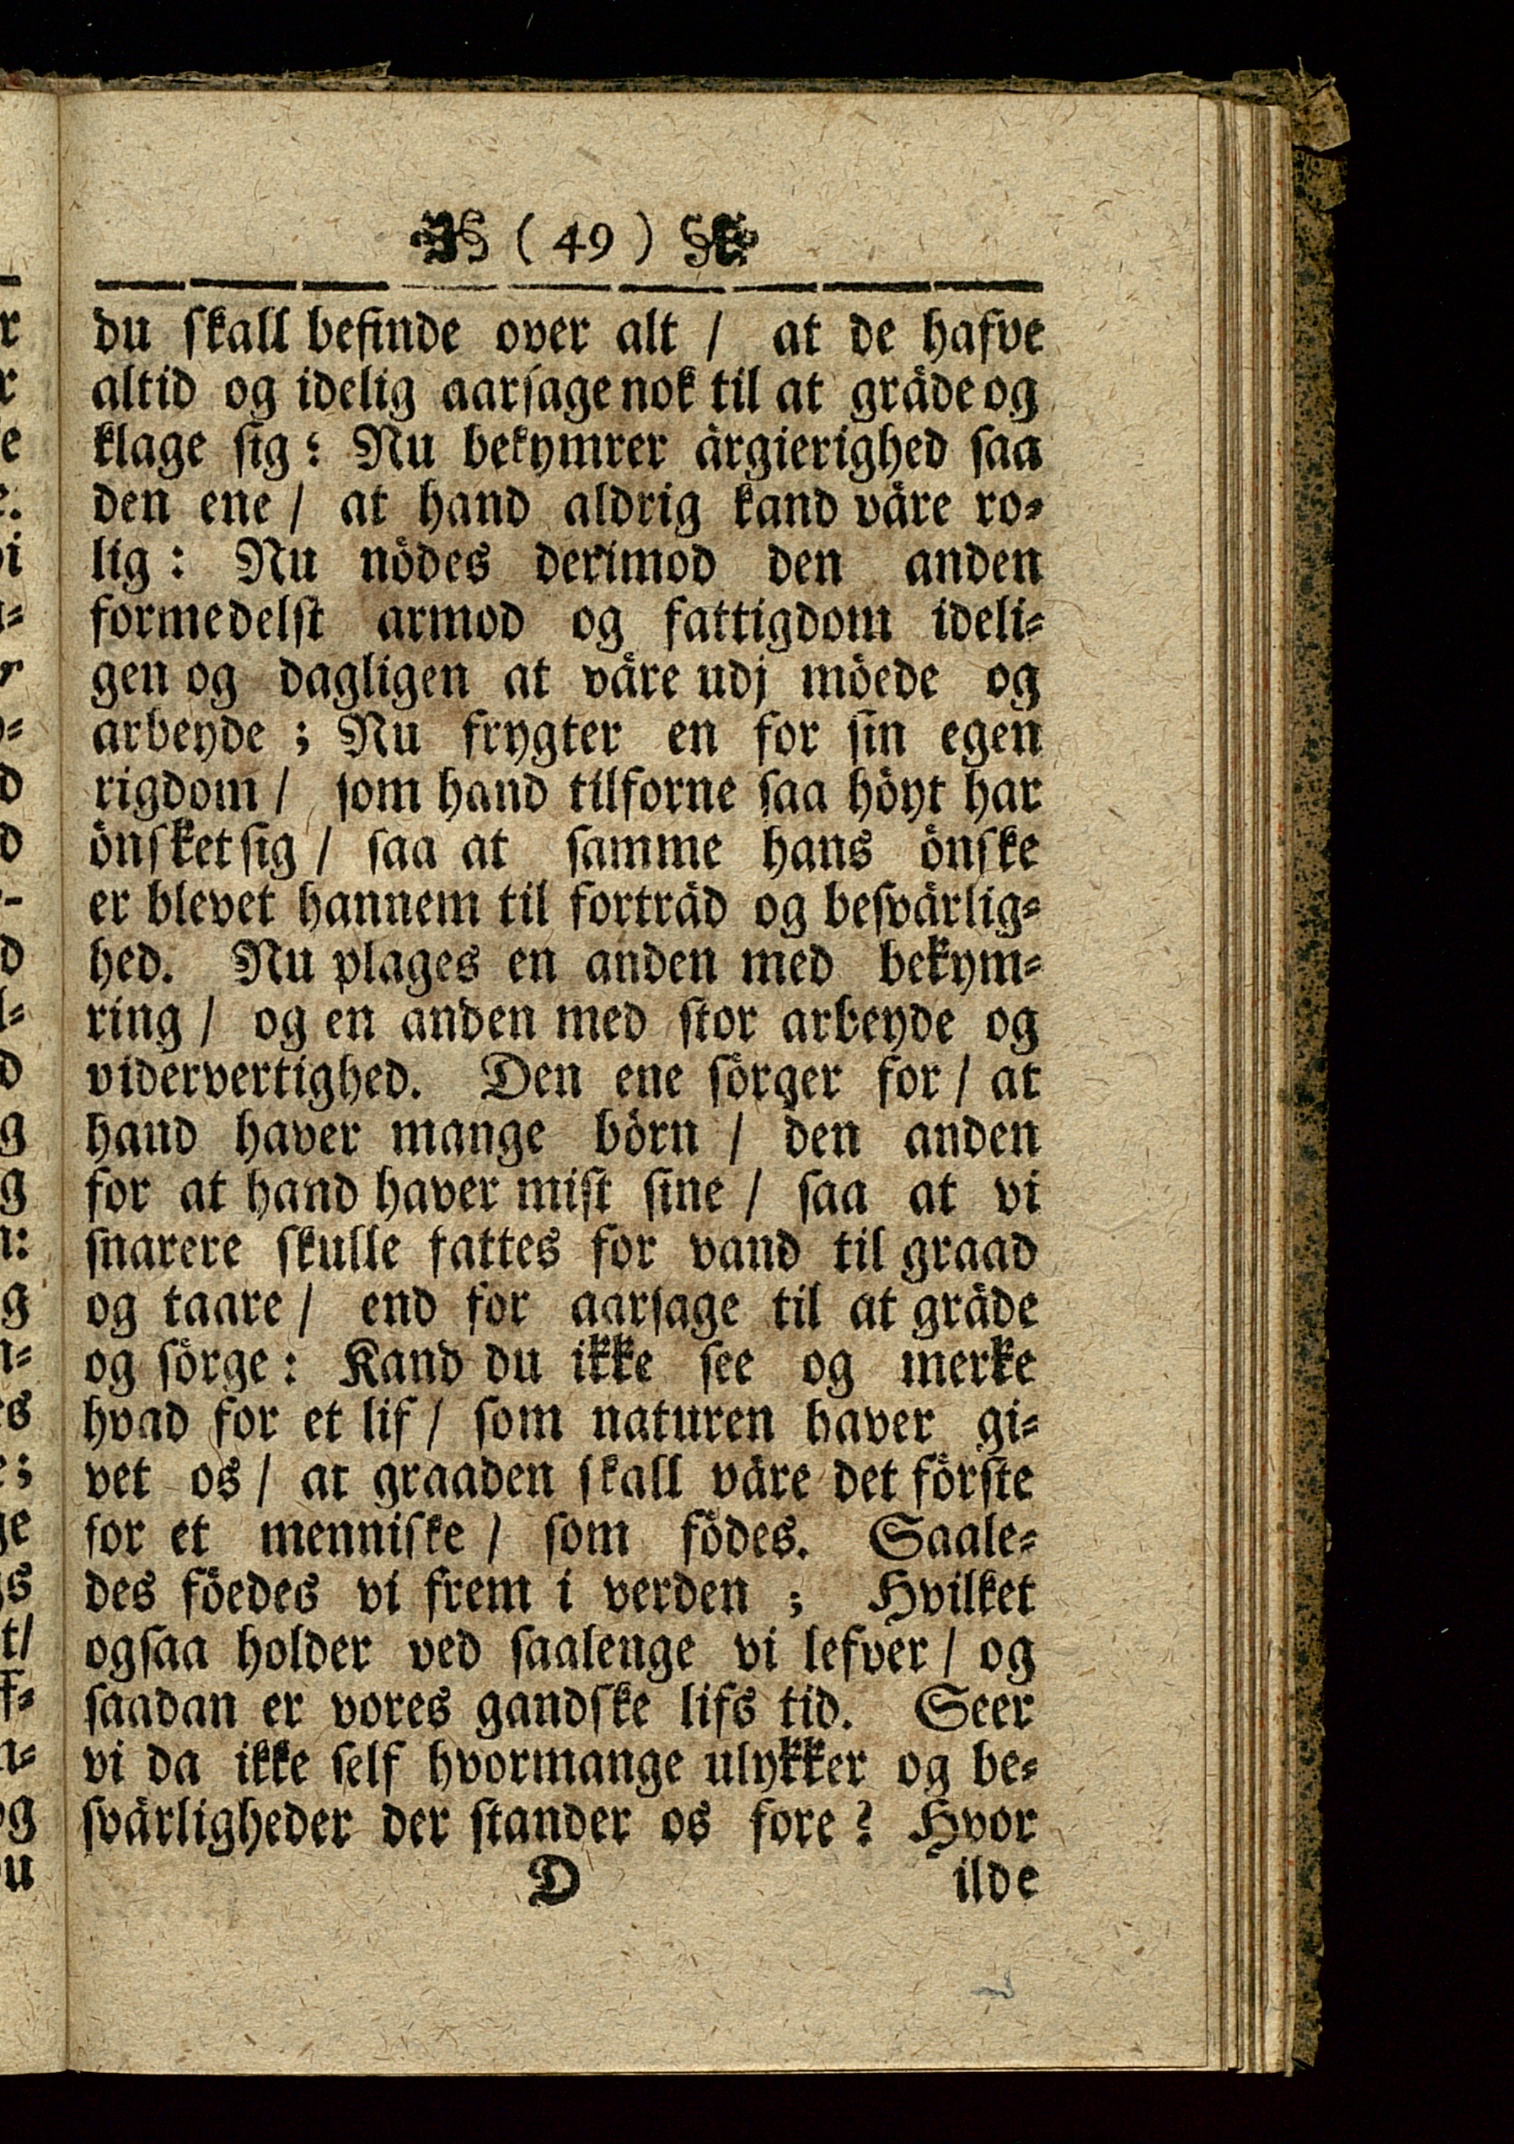 ( 49 )
du skall befinde over alt / at de hafve
altid og idelig aarsage nok til at gräde og
klage sig: Nu bekymrer ärgierighed saa
den ene / at hand aldrig kand väre ro-
lig: Nu nödes derimod den anden
formedelst armod og fattigdom ideli-
gen og dagligen at väre udj möede og
arbeyde ; Nu frygter en for sin egen
rigdom / som hand tilforne saa höyt har
önsket sig / saa at samme hans önske
er blevet hannem til forträd og besvärlig-
hed. Nu plages en anden med bekym-
ring / og en anden med stor arbeyde og
vidervertighed. Den ene sörger for / at
hand haver mange börn / den anden
for at hand haver mist sine / saa at vi
snarere skulle fattes for vand til graad
og taare / end for aarsage til at gräde
og sörge: Kand du ikke see og merke
hvad for et lif / som naturen haver gi-
vet os / at graaden skall väre det förste
for et menniske / som födes. Saale-
des föedes vi frem i verden ; Hvilket
ogsaa holder ved saalenge vi lefver / og
saadan er vores gandske lifs tid. Seer
vi da ikke self hvormange ulykker og be-
svärligheder der stander os fore? Hvor
D ilde